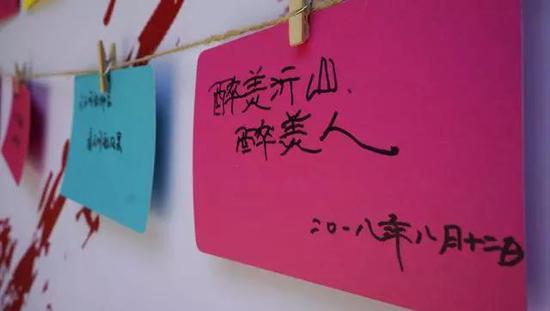 醉美沂山、
醉美人
二〇一八年八月十二日